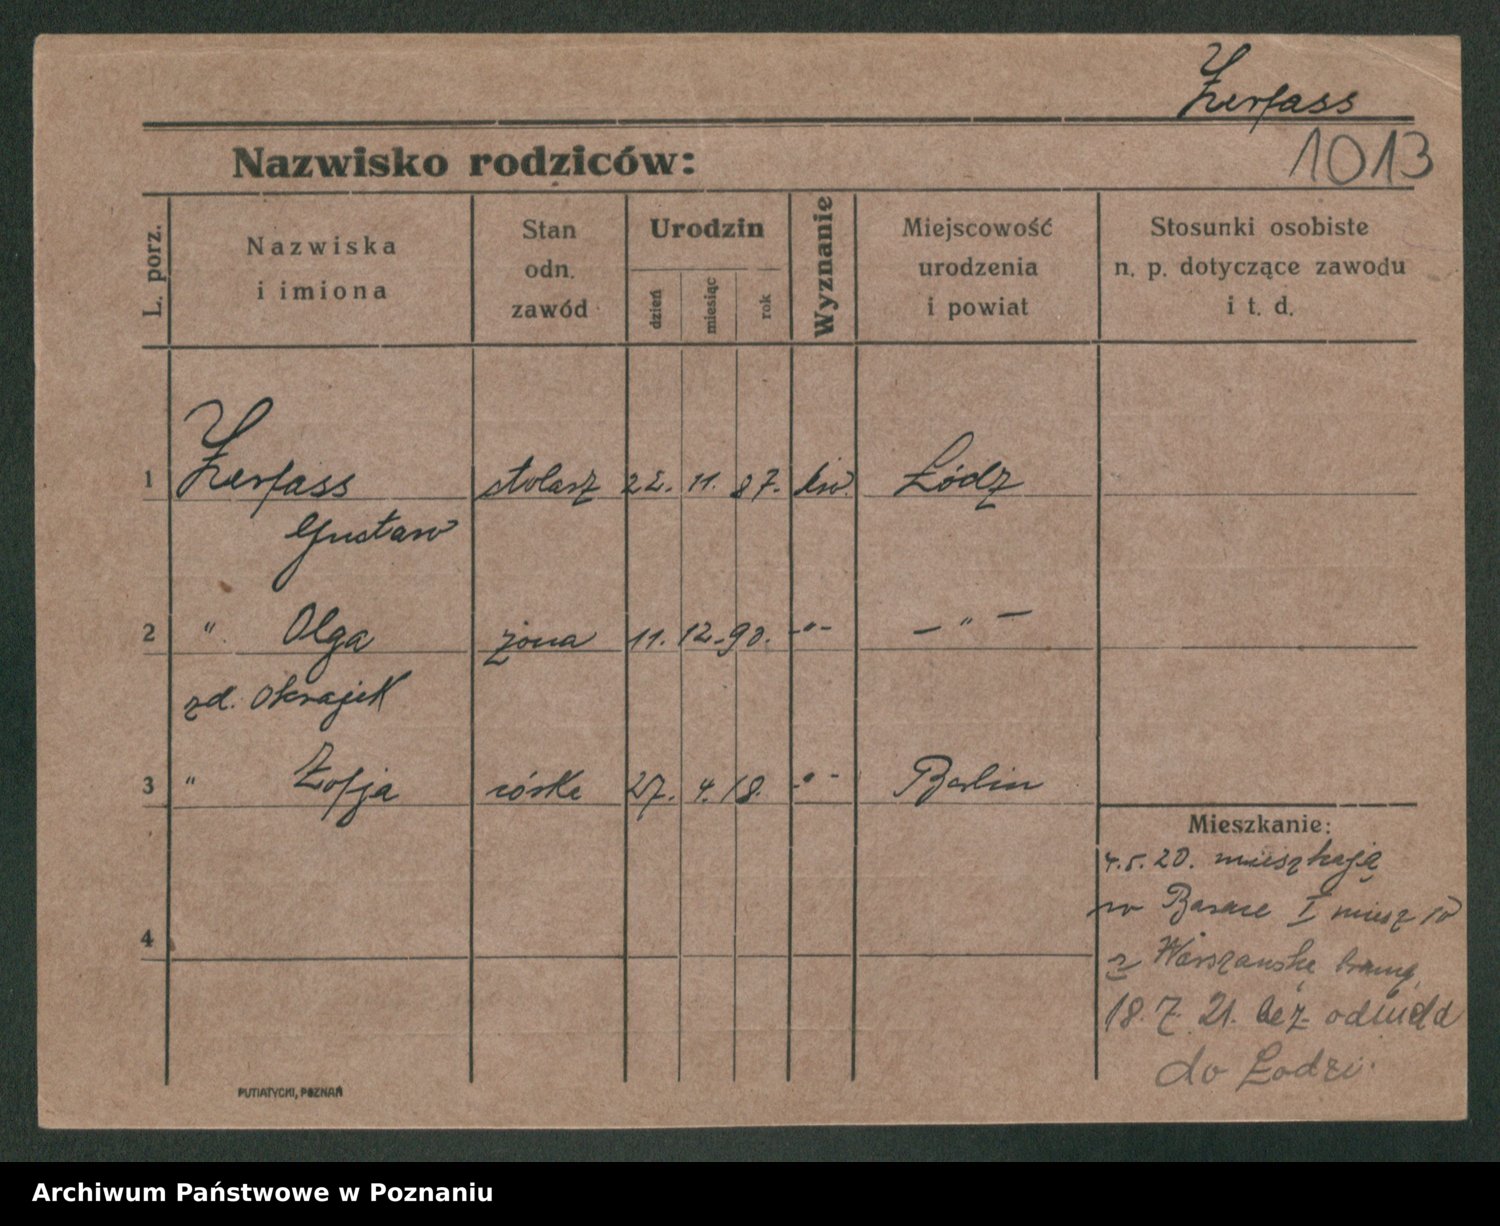 Zerfass
1013
Nazwisko rodziców:
L. porz.
Nazwiska
i imiona
Stan
odn.
zawód
Urodzin
dzień
miesiąc
rok
Wyznanie
Miejscowość
urodzenia
i powiat
Stosunki osobiste
n. p. dotyczące zawodu
i t. d.
1 Zerfass stolarz 22. 11. 87. ew. Łódz
Gustaw
2 " Olga żona 11. 12. 90. -"- — " —
zd. Okrajek
3 " Zofja córka 27. 4. 18. -"- Berlin
Mieszkanie:
4.5.20. mieszkają
w Barace I miesz 10
z Warszawską bramą
4
18. 7. 21. bez odmeld
do Łodzi.
PUTIATYCKI, POZNAŃ
Archiwum Państwowe w Poznaniu